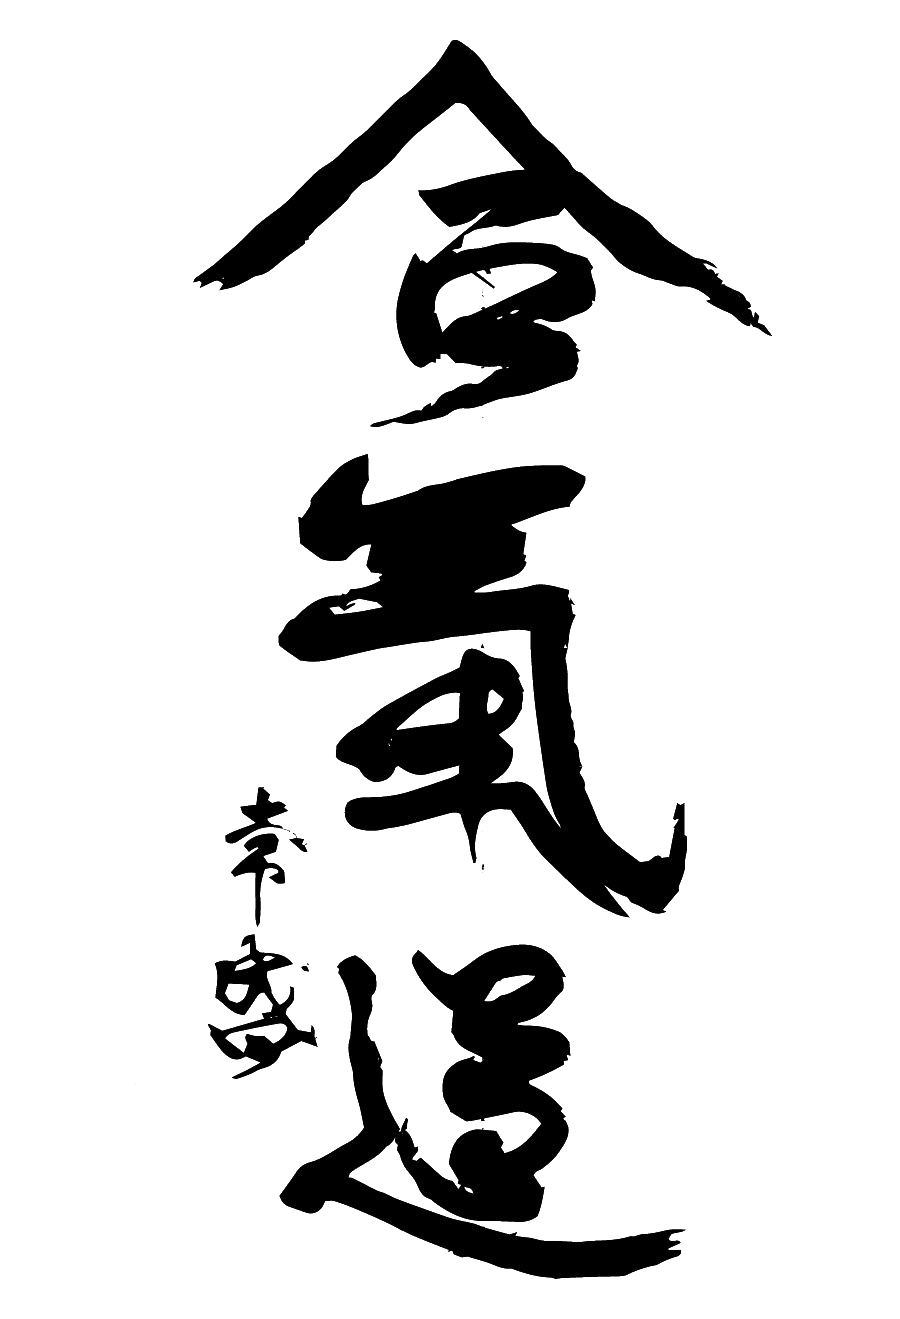 合氣道
常盛